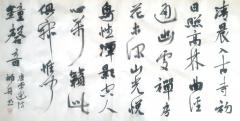 清晨入古寺初
日照高林曲徑
通幽處禪房
花木深山光悅
鳥性潭影空人
心萬籟此
俱寂惟聞
鐘磬音